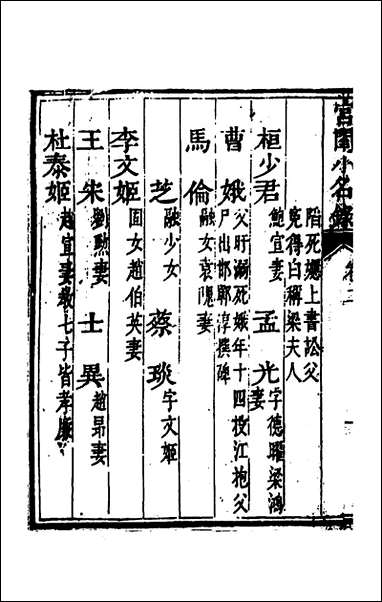 宮閨小名錄 卷二
陷死嫕上書訟父
寃得白稱梁夫人
桓少君 鮑宣妻 孟光 字德曜梁鴻妻
曹娥 父盱溺死娥年十四投江抱父尸出邯鄲淳撰碑
馬倫 融女袁隗妻
芝 融少女 蔡琰 字文姬
李文姬 固女趙伯英妻
王朱 劉勲妻 士異 趙昂妻
杜泰姬 趙宣妻教七子皆孝廉